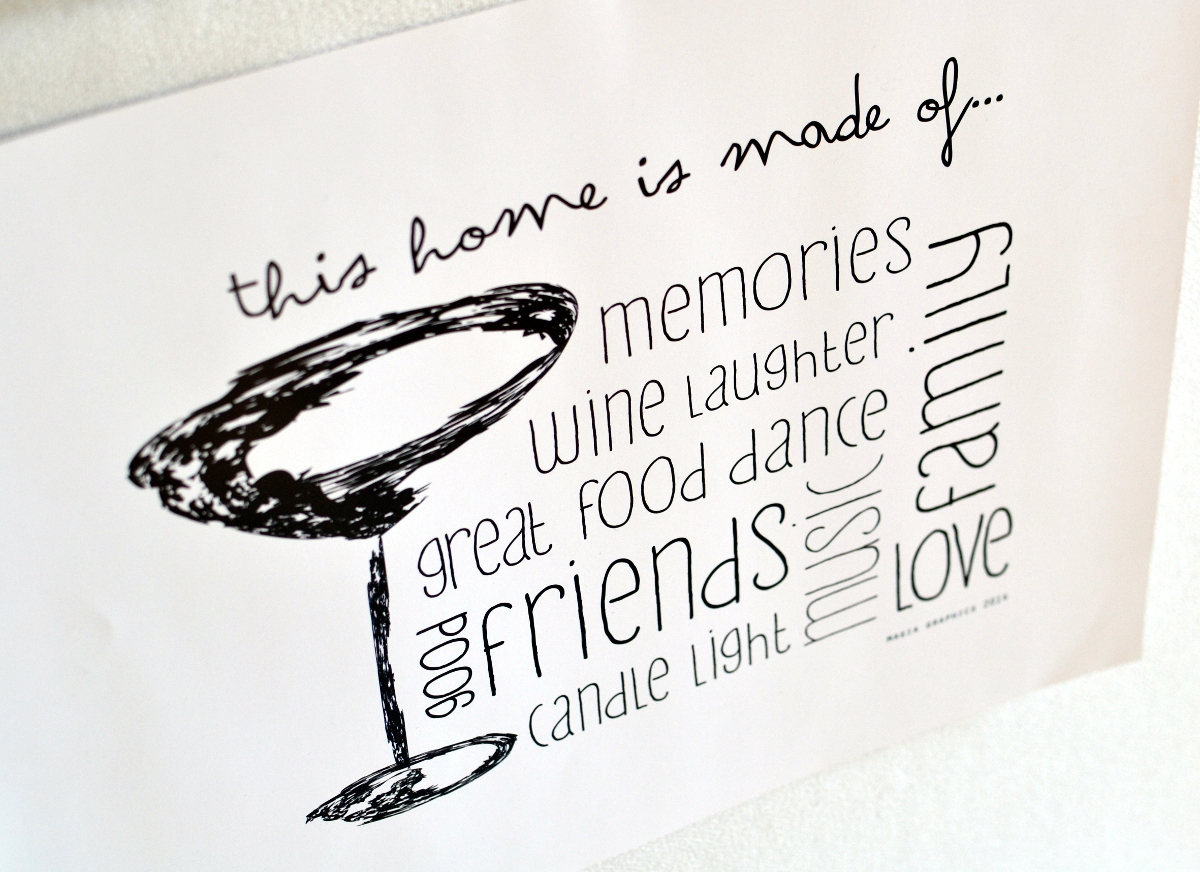 this home is made of...
memories
wine laughter.
great food dance
good
friends.
candle light
music
family
LOVE
MAGIA GRAPHICS 2014